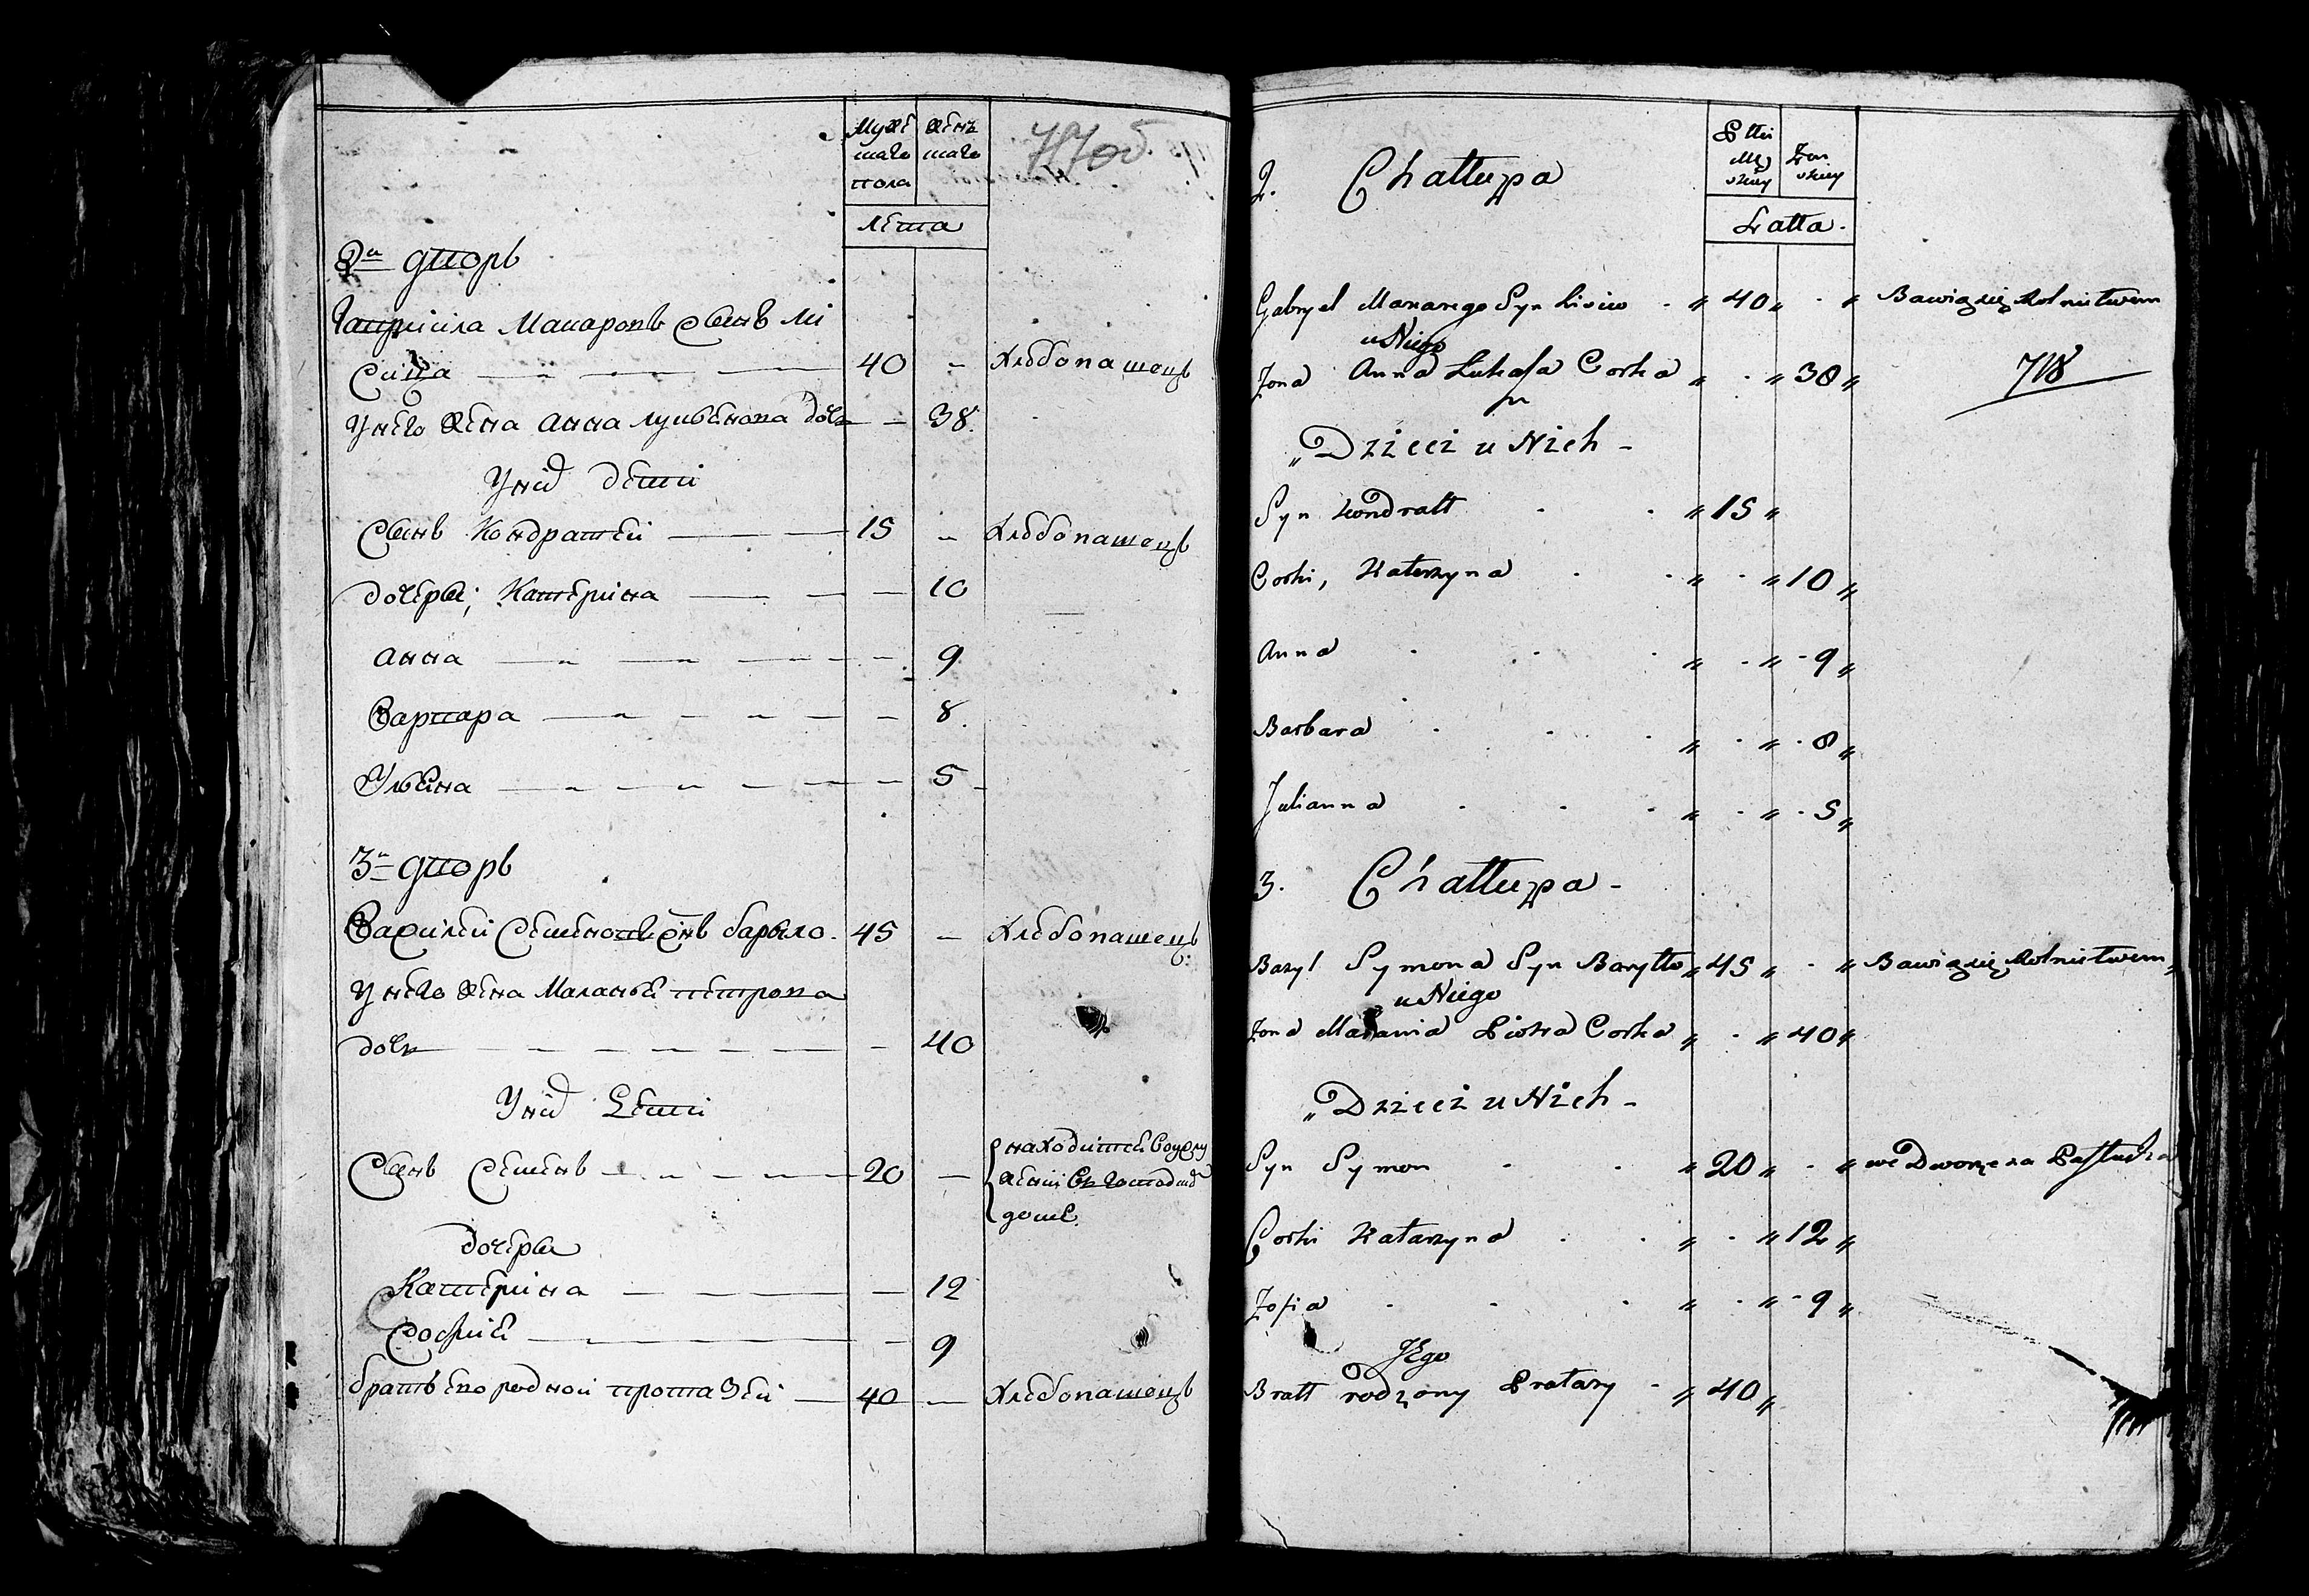 Муже
ска го
пола
женъ
ска го
лѣта
2й дворъ
Гаврила Макаровъ сынъ Ли
сица 40 — Хлѣбопашецъ
У него жена Анна лукьянова дочь — 38.
У нихъ дѣти
Сынъ Кондратей 15 — Хлѣбопашецъ
дочеры; Катерина — 10
Анна — 9
Варвара — 8.
Ульяна — 5
3й дворъ
Василей Семеновъ снъ барыло. 45 — Хлебопашецъ
У него жена Маланья петрова
дочь — 40
У нихъ Дети
Сынъ Семенъ 20 —
находится
въ господ
доме.
дочеры
Катерина — 12
София — 9
братъ ево родной протазей 40 — Хлебопашецъ
2. Chałłupa
Płci
Mę
skiey
Żeń
skiey
Latta.
Gabryel Makarego Syn „ 40 „ - „ Bawi się Rolnictwem
u Niego
Żona Anna Łukasza Corka „ - „ 38 „
718
„Dzieci u Nich -
Syn Kondratt „ 15 „
Corki, Katerzyna „ - „ 10 „
Anna „ - „ - 9 „
Barbara „ - „ - 8 „
Julianna „ - „ - 5 „
3. Chałłupa -
Bazyl Symona Syn Baryłło „ 45 „ - „ Bawi się Rolnictwem „
u Niego
Żona Malania Piotra Corka „ - „ 40 „
„Dzieci u Nich -
Syn Symon „ 20 „ - „ we Dworze za Pastucha
Corki Katarzyna „ - „ 12 „
Zofia „ - „ - 9 „
Jego
Bratt rodzony Protazy - „ 40 „